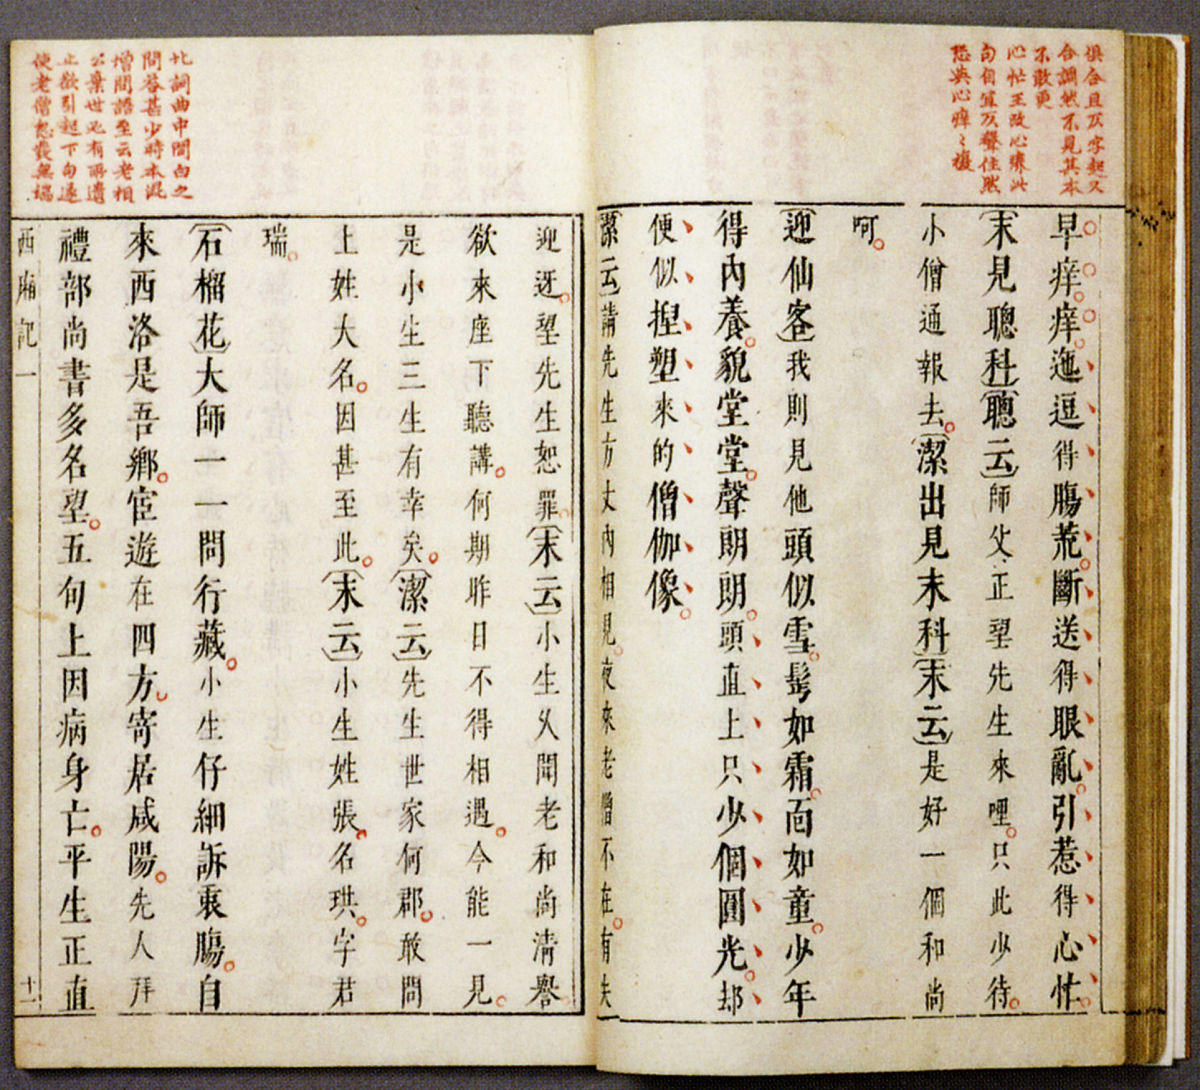 俱合且及字起又
合調然不見其本
不敢更
心忙王改心癢此
句自宜仄聲住然
恐與心癢癢複
早痒痒迤逗得腸荒斷送得眼亂引惹得心忙
末見聰科聰云師父正望先生來哩只此少待
小僧通報去潔出見末科末云是好一個和尚
呵
迎仙客我則見他頭似雪髩如霜面如童少年
得內養貌堂堂聲朗朗頭直上只少個圓光却
便似捏塑來的僧伽像
潔云請先生方丈內相見夜來老僧不在有失
此詞曲中間白之
問答甚少時本混
增間語至云老相
公棄世必有所遺
止欲引起下句遂
使老僧
迎迓望先生恕罪末云小生乆聞老和尚清譽
欲來座下聽講何期昨日不得相遇今能一見
是小生三生有幸矣潔云先生世家何郡敢問
上姓大名因甚至此末云小生姓張名珙字君
瑞
石榴花大師一一問行藏小生仔細訴衷腸自
來西洛是吾鄉宦遊在四方寄居咸陽先人拜
禮部尚書多名望五旬上因病身亡平生正直
西廂記一
十二